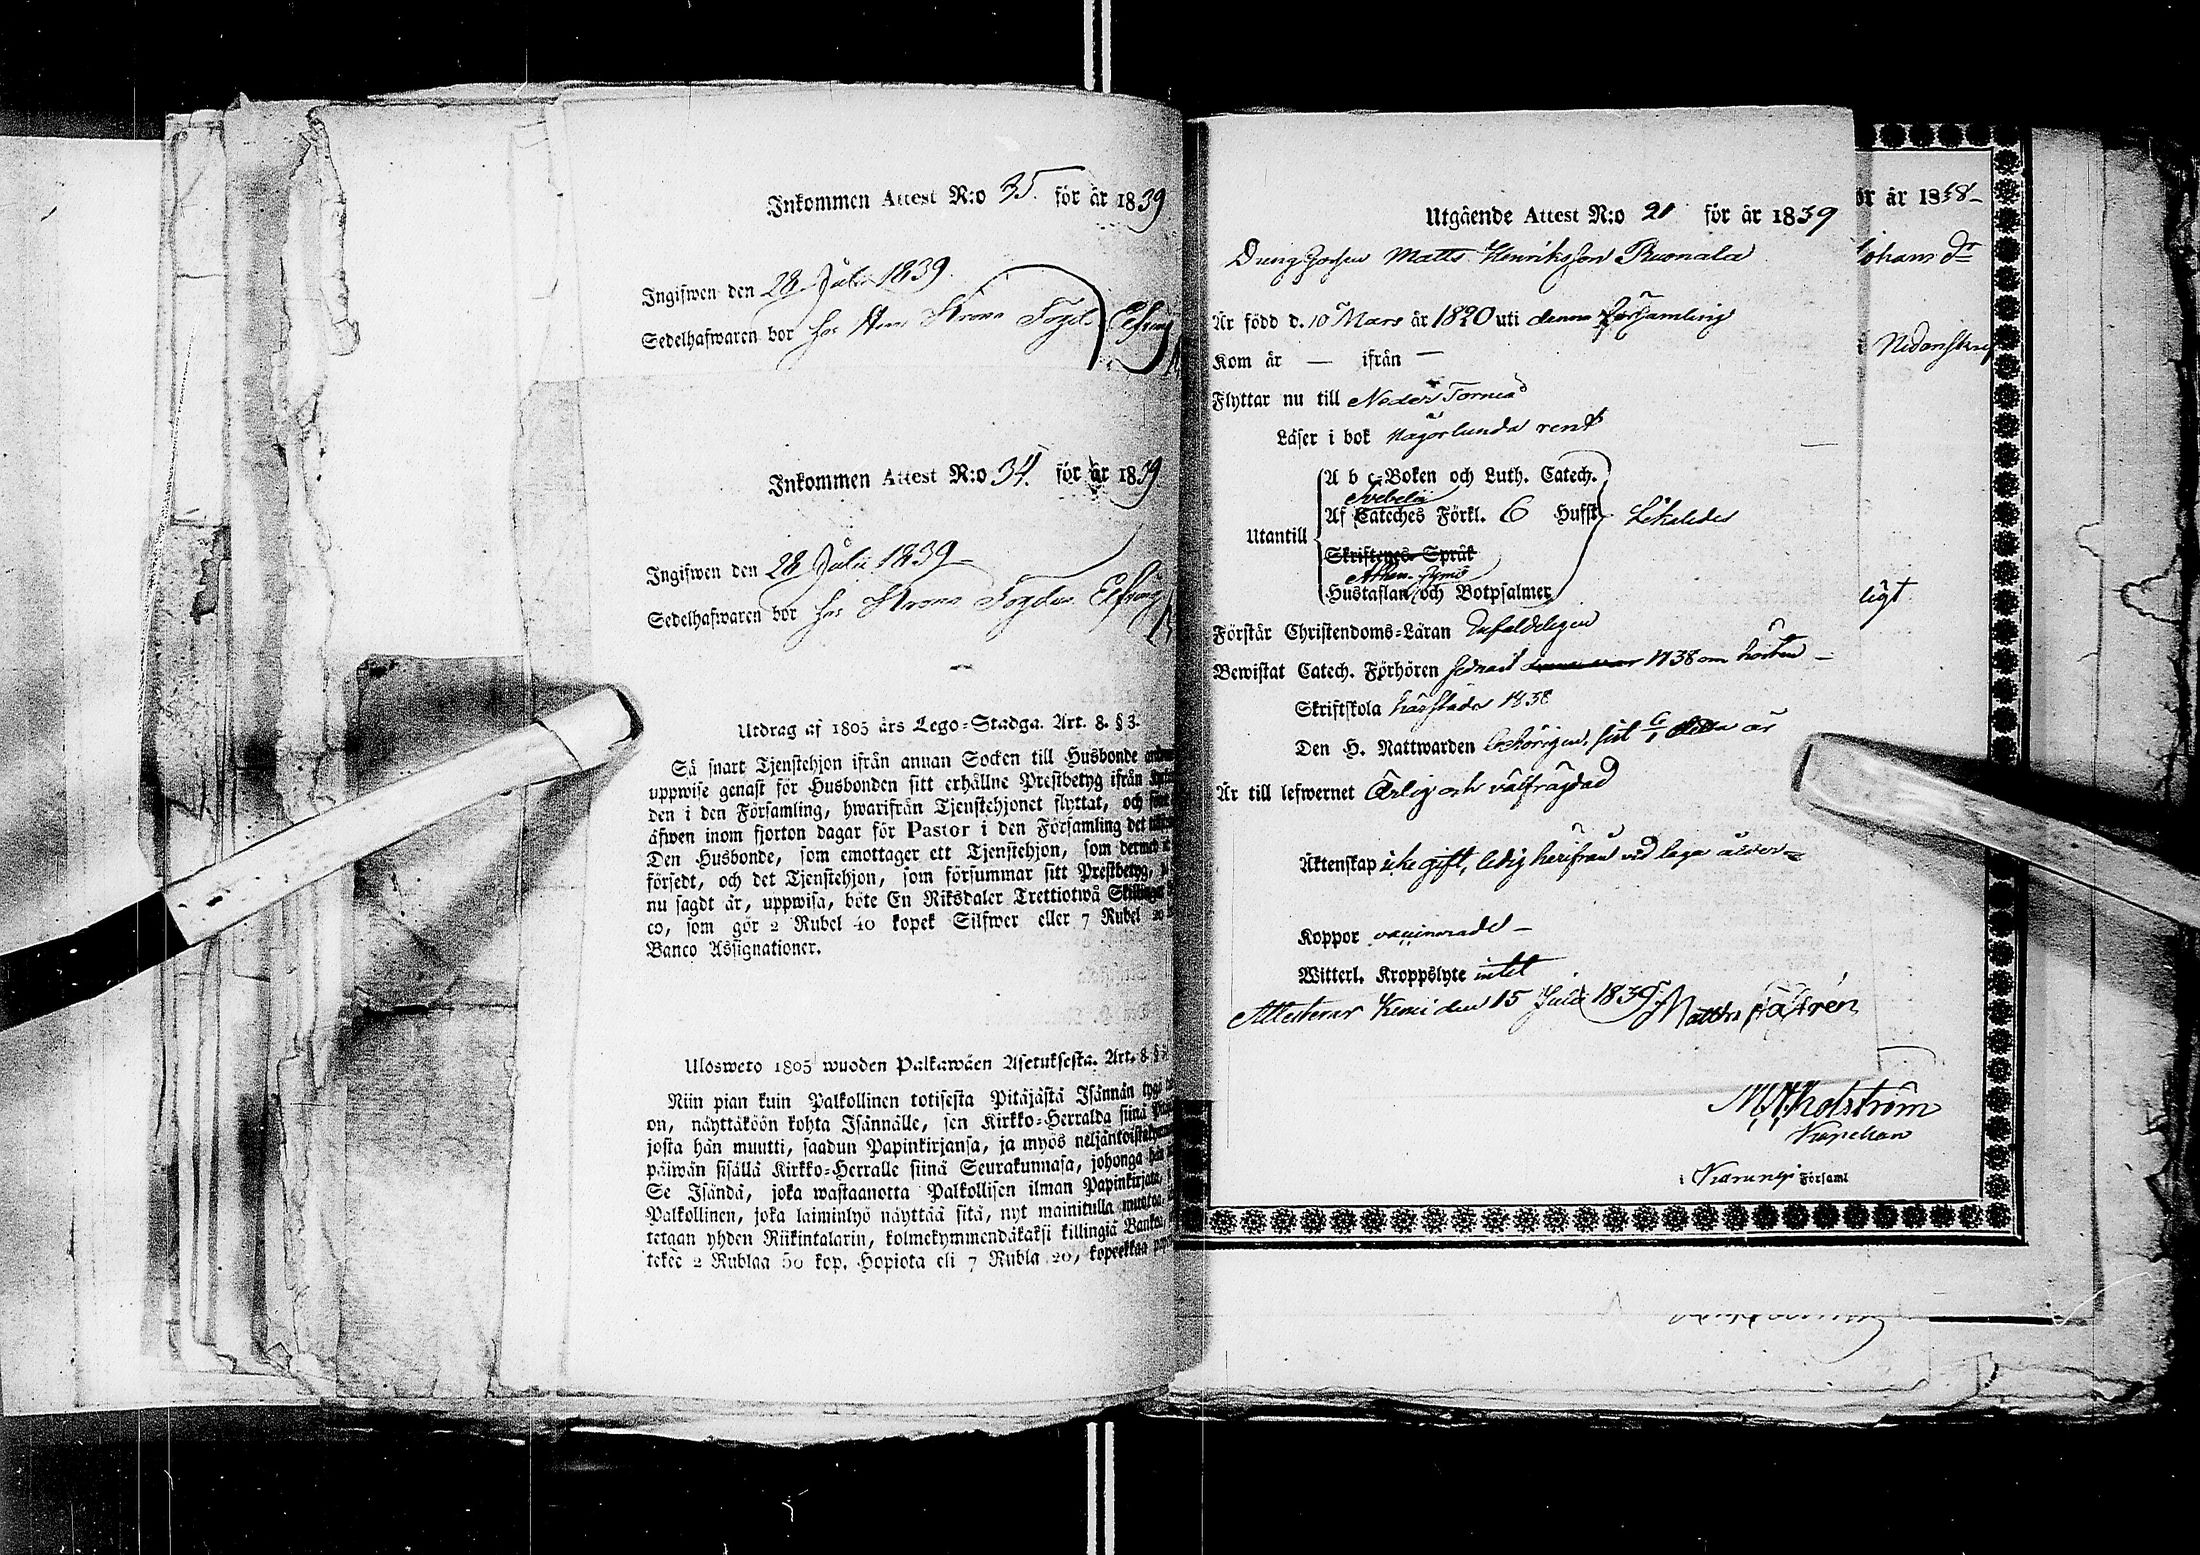 Inkommen Attest N:o 35. för år 1839
Ingifwen den 28 Julii 1839
Sedelhafwaren bor hos Krono Fogde Elfving
Inkommen Attest N:o 34. för år 1839
Ingifwen den 28 Julii 1839
Sedelhafwaren bor hos Krono Fogden Elfving
Utdrag af 1805 års Lego-Stadga. Art. 8. § 3.
Så snart Tjenstehjon ifrån annan Socken till Husbonde
uppwise genast för Husbonden sitt erhållne Prestbetyg ifrån
den i den Församling, hwarifrån Tjenstehjonet flyttat, och
äfwen inom fjorton dagar för Pastor i den Församling det
Den Husbonde, som emottager ett Tjenstehjon, som dermed
försedt, och det Tjenstehjon, som försummar sitt Prestbetyg,
nu sagdt är, uppwisa, böte En Riksdaler Trettiotwå Skillingar
co, som gör 2 Rubel 40 kopek Silfwer eller 7 Rubel 20
Banco Assignationer.
Ulosweto 1805 wuoden Palkawäen Asetuksesta. Art. 8. §
Niin pian kuin Palkollinen totisesta Pitäjästä Isännän tygö
on, näyttäköön kohta Isännälle, sen Kirkko-Herralda siinä
josta hän muutti, saadun Papinkirjansa, ja myös neljäntoistakymmenen
päiwän sisällä Kirkko-Herralle siinä Seurakunnasa, johonga hän
Se Isändä, joka wastaanotta Palkollisen ilman Papinkirjata,
Palkollinen, joka laiminlyö näyttää sitä, nyt mainitulla muotoa,
tetaan yhden Riikintalarin, kolmekymmendäkaksi killingiä Banko,
tekee 2 Rublaa 50 kop. Hopiota eli 7 Rubla 20, kopeekkaa
Utgående Attest N:o 21 för år 1839
Dreng Matts Henriksson Ruonala
Är född d. 10 Mars år 1820 uti denna Församling
Kom år — ifrån —
Flyttar nu till Neder Torneå
Läser i bok någorlunda rent
A b c-Boken och Luth. Catech.
Svebelii
Utantill Af Cateches Förkl. 6 Hufst. Likaledes
Skriftenes Språk
Athan. Symb.
Hustaflan och Botpsalmer
Förstår Christendoms-Läran Enfaldeligen
Bewistat Catech. Förhören sednast 1838 om hösten —
Skriftskola härstädes 1838
Den H. Nattwarden behörigen, sist detta år
Är till lefwernet Ärlig och välfrägdad
Äktenskap icke gift, ledig härifrån vid laga ålder
Koppor vaccinerad —
Witterl. Kroppslyte intet
Attesterar Kemi den 15 Julii 1839. Matths Castrén
ör år 1838
Johans dr
Nedanskref
ligt
M. A. Kolström
Kapellan
i Karungi Församl